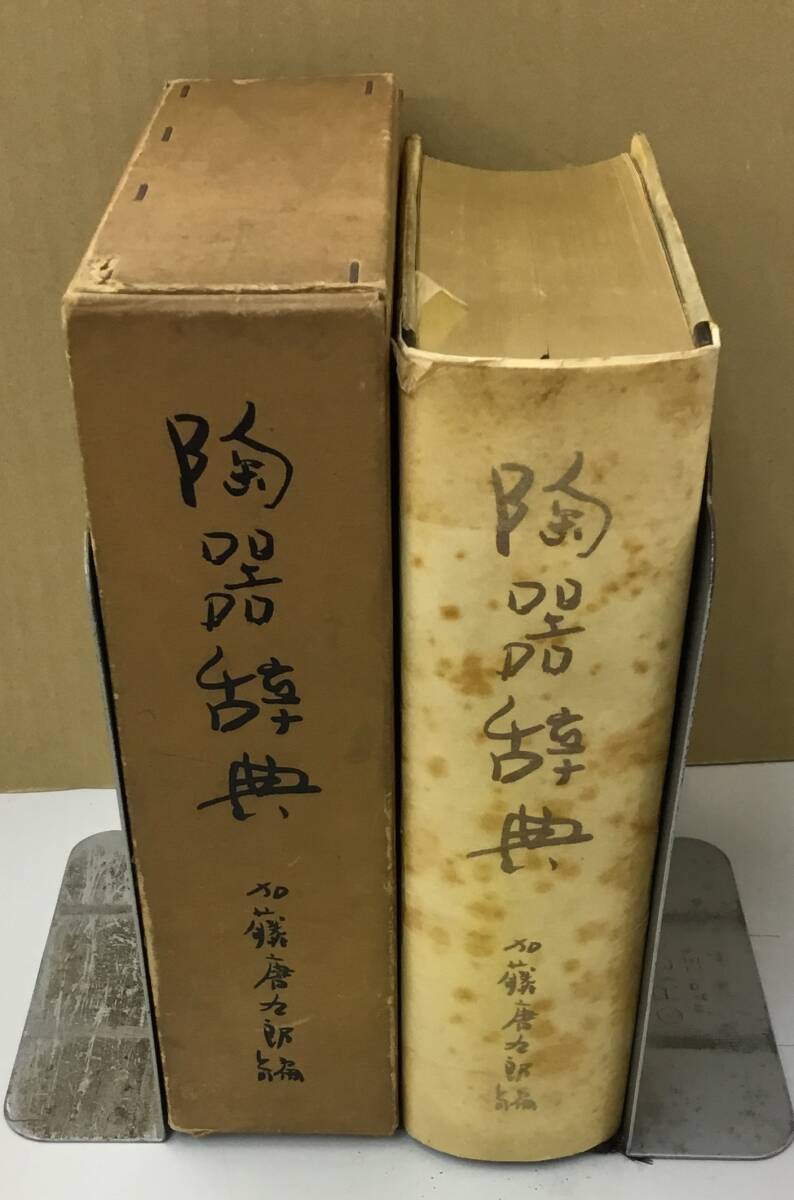 陶器辞典
加藤唐九郎編
陶器辞典
加藤唐九郎編